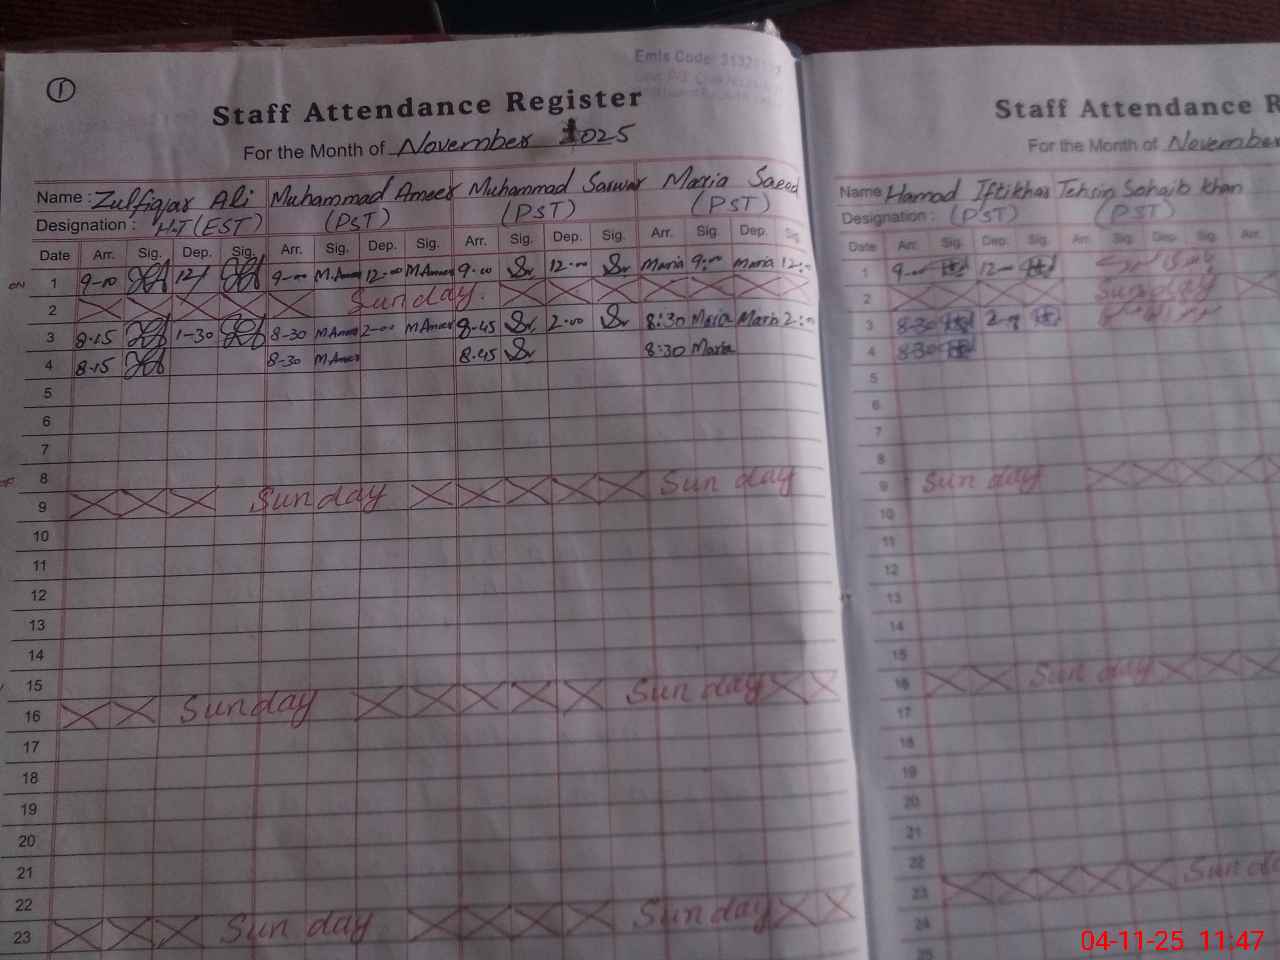 1
Emis Code:
Staff Attendance Register
For the Month of November 2025
Name : Zulfiqar Ali Muhammad Ameer Muhammad Sarwar Maria Saeed
Designation : H.T (EST) (PST) (PST) (PST)
Date Arr. Sig. Dep. Sig. Arr. Sig. Dep. Sig. Arr. Sig. Dep. Sig. Arr. Sig. Dep. Sig.
1 9-00 12/ 9-00 M.Ameer 12-00 M.Ameer 9.00 12.00 Maria 9:00 Maria 12:00
2 Sunday
3 8.15 1-30 8-30 M.Ameer 2-00 M.Ameer 8.45 2.00 8:30 Maria Maria 2:00
4 8.15 8-30 M.Ameer 8.45 8:30 Maria
5
6
7
8
9 Sunday Sunday
10
11
12
13
14
15
16 Sunday Sunday
17
18
19
20
21
22
23 Sunday Sunday
Staff Attendance R
For the Month of November
Name Hamad Iftikhar Tehsin Sohaib Khan
Designation : (PST) (PST)
Date Arr. Sig. Dep. Sig. Arr. Sig. Dep. Sig. Arr.
1 9-00 12-00
2 Sunday
3 8-30 2-0
4 8-30
5
6
7
8
9 Sunday
10
11
12
13
14
15
16 Sunday
17
18
19
20
21
22
23 Sunda
24
25
04-11-25 11:47